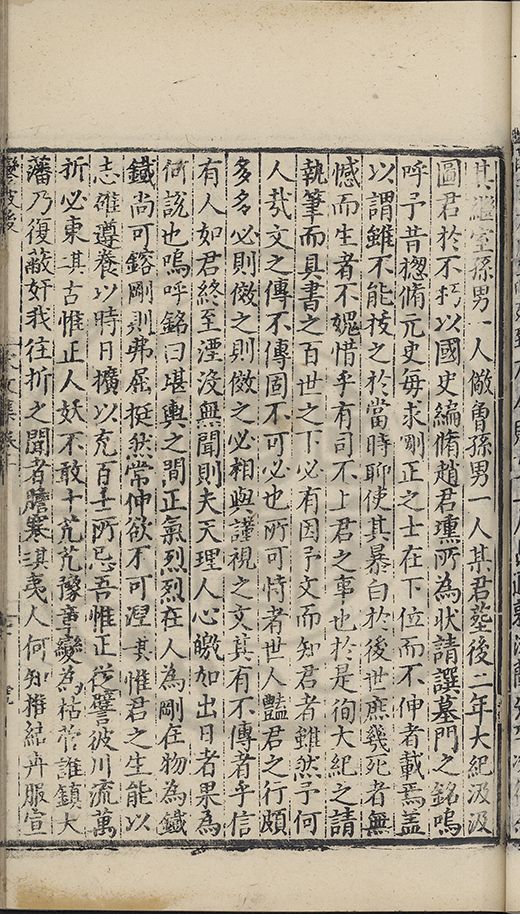 其繼室孫男一人儆魯孫男一人某君塟後二年大紀汲汲
圖君於不朽以國史編脩趙君壎所為狀請譔墓門之銘嗚
呼予昔揔脩元史每求剛正之士在下位而不伸者載焉盖
以謂雖不能拔之於當時聊使其暴白於後世庶幾死者無
憾而生者不媿惜乎有司不上君之事也於是徇大紀之請
執筆而具書之百世之下必有因予文而知君者雖然予何
人㢤文之傳不傳固不可必也所可恃者世人豔君之行頗
多多必則傚之則傚之必相與謹視之文其有不傳者乎信
有人如君終至湮沒無聞則夫天理人心皦如出日者果為
何說也嗚呼銘曰堪輿之間正氣烈烈在人為剛在物為鐵
鐵尚可鎔剛則弗屈挺然常伸欲不可涅其惟君之生能以
志碓遵養以時日擴以充百壬所忌吾惟正從譬彼川流萬
折必東其古惟正人妖不敢干芃芃豫章變為枯菅誰鎮大
藩乃復蔽奸我往折之聞者膽寒淇夷人何知椎結卉服宣